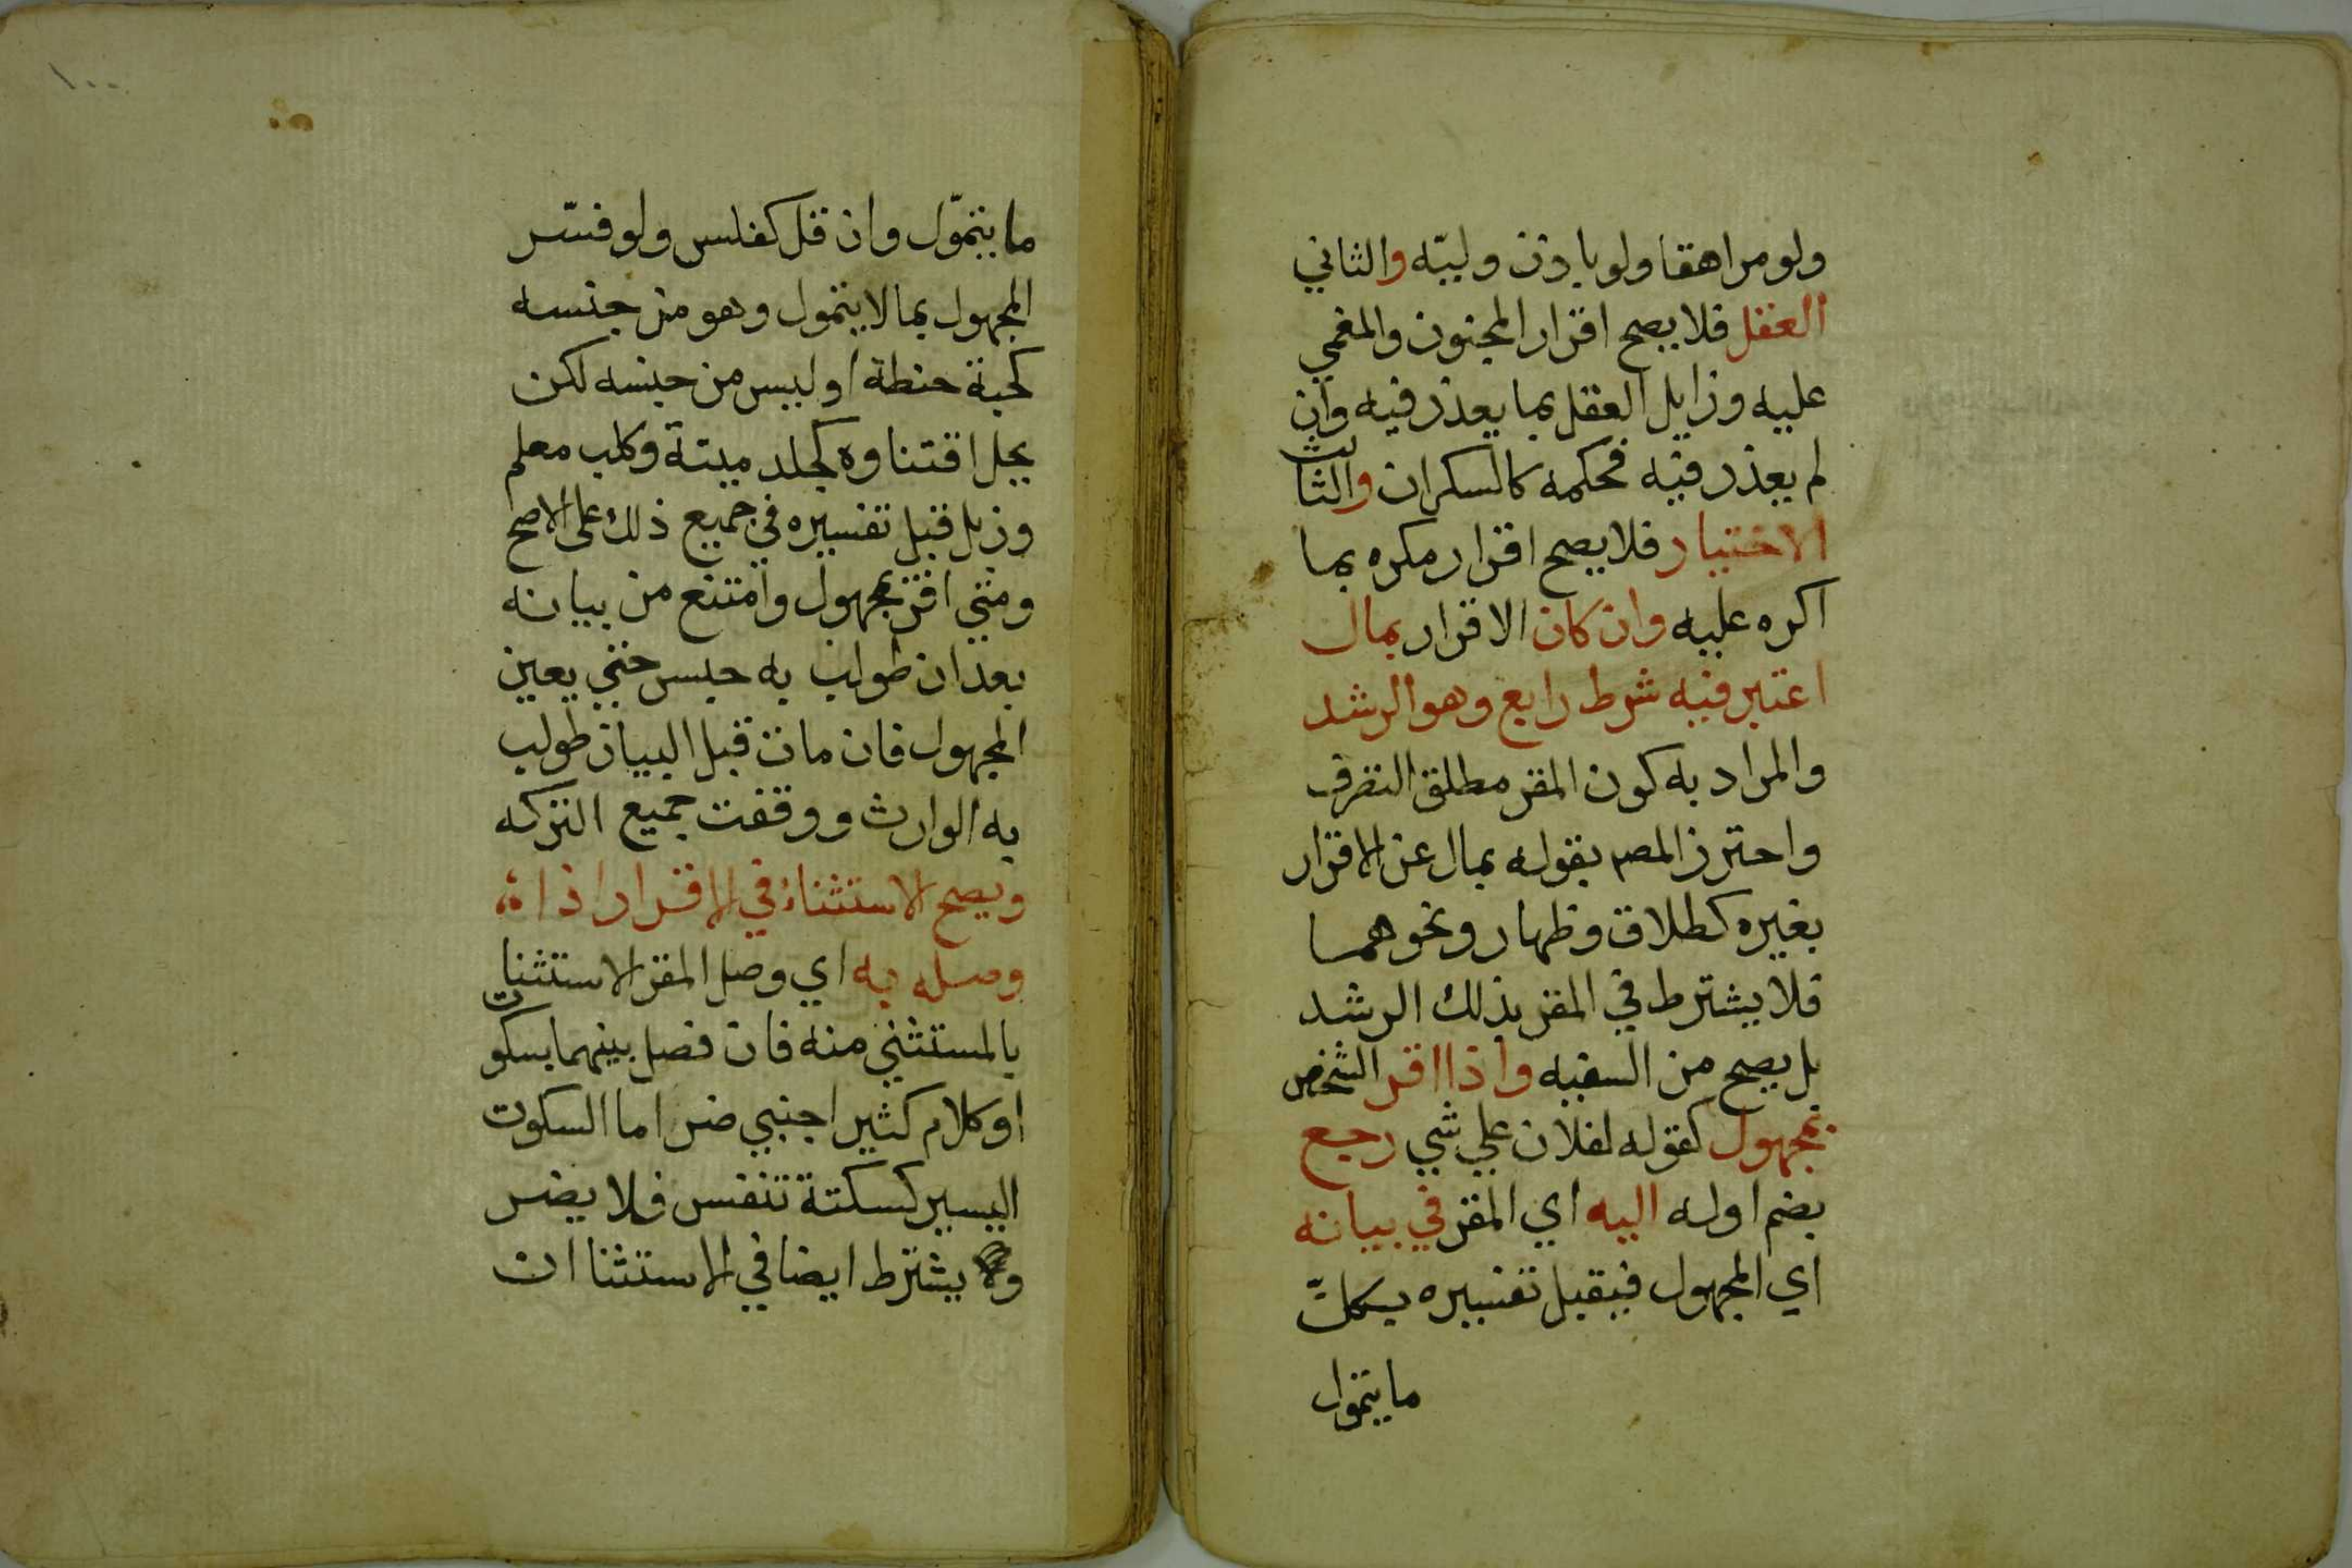 ولو مراهقا ولو باذن وليّه والثاني
العقل فلا يصح اقرار المجنون والمغمي
عليه وزايل العقل بما يعذر فيه وان
لم يعذر فيه فحكمه كالسكران والثالث
الاختيار فلا يصح اقرار مكره بما
اكره عليه وان كان الاقرار بمال
اعتبر فيه شرط رابع وهو الرشد
والمراد به كون المقر مطلق التصرف
واحترز المصر بقوله بمال عن الاقرار
بغيره كطلاق وظهار ونحوهما
فلا يشترط في المقر بذلك الرشد
بل يصح من السفيه واذا اقر الشخص
بمجهول كقوله لفلان علي شي رجع
بضم اوله اليه اي المقر في بيانه
اي المجهول فيقبل تفسيره بكلّ
ما يتمول
١٠٠
ما يتموّل وان قل كفلس ولو فسّر
المجهول بما لا يتمول وهو من جنسه
كحبة حنطة او ليس من جنسه لكن
يحل اقتناوه كجلد ميتة وكلب معلم
وزبل قبل تفسيره في جميع ذلك على الاصح
ومتي اقر بمجهول وامتنع من بيانه
بعد ان طولب به حبس حتي يعين
المجهول فان مات قبل البيان طولب
به الوارث ووقفت جميع التركه
ويصح الاستثناء في الاقرار اذا
وصله به اي وصل المقر الاستثنا
بالمستثني منه فان فصل بينهما بسكوت
او كلام كثير اجنبي ضر اما السكوت
اليسير كسكتة تنفس فلا يضر
ويشترط ايضا في الاستثنا ان